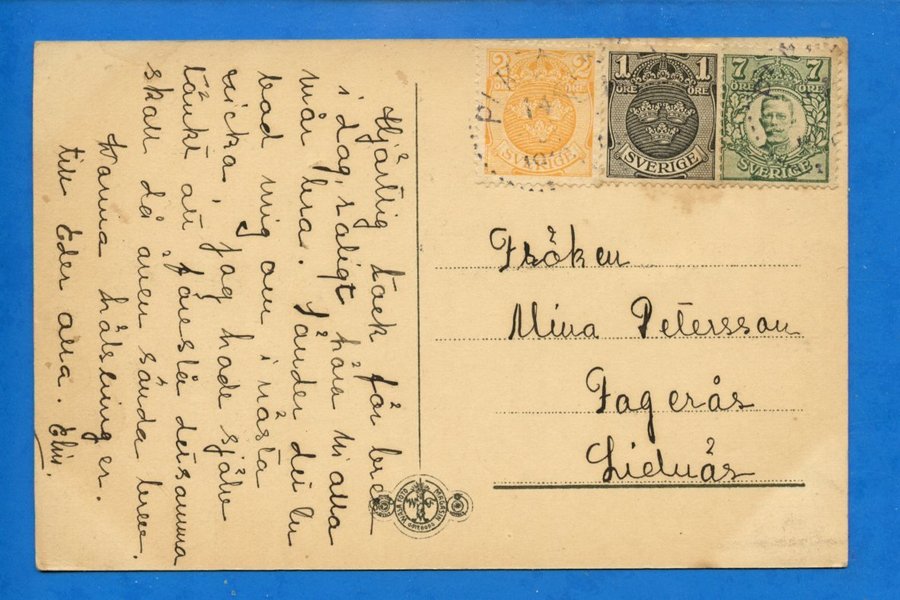 Hjärtlig tack för bref
i dag, roligt höra ni alla
mår bra. Sänder det du
bad mig om i nästa
vicka, jag hade själv
tänkt att föreslå detsamma
skall då även sända brev.
Många hälsningar
till Eder alla. Elin.
2 2
ÖRE ÖRE
SVERIGE
1 1
ÖRE ÖRE
SVERIGE
7 7
ÖRE ÖRE
SVERIGE
14
Fröken
Mina Petersson
Fagerås
Lidnäs